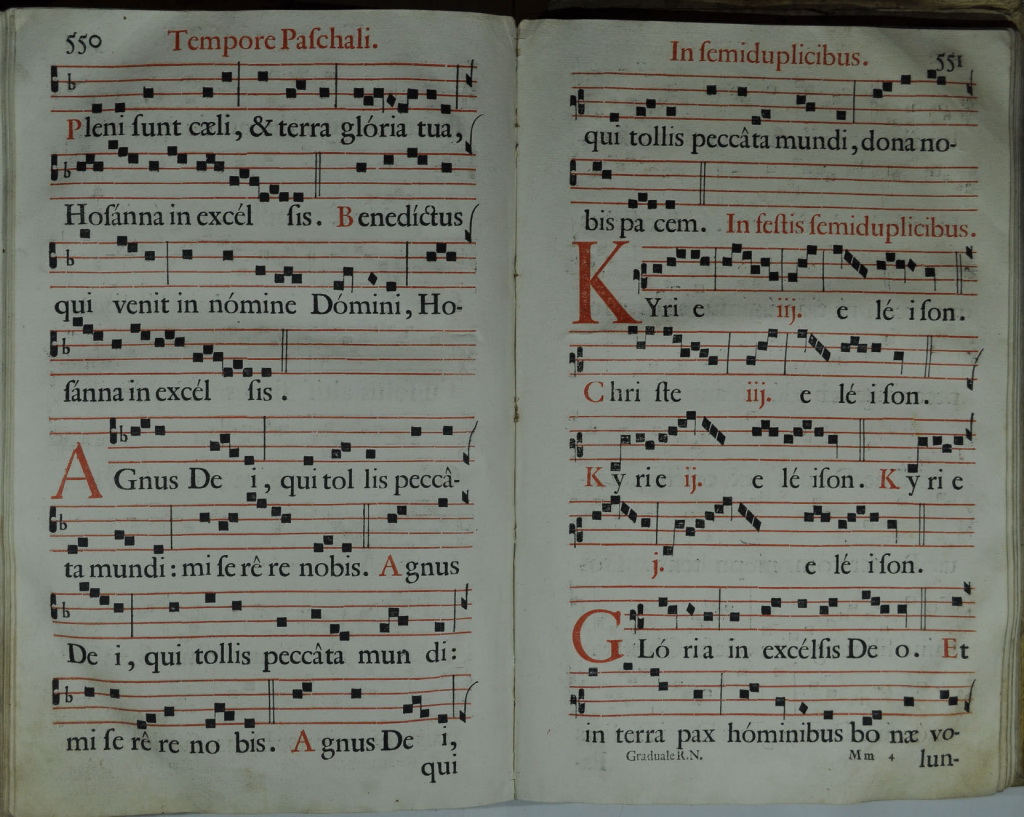 550 Tempore Paſchali.
Pleni ſunt cæli, & terra glória tua,
Hoſánna in excél ſis. Benedíctus
qui venit in nómine Dómini, Ho-
ſánna in excél ſis.
AGnus De i, qui tol lis peccâ-
ta mundi: mi ſe rê re nobis. Agnus
De i, qui tollis peccâta mun di:
mi ſe rê re no bis. Agnus De i,
qui
In ſemiduplicibus. 551
qui tollis peccâta mundi, dona no-
bis pa cem. In feſtis ſemiduplicibus.
KYri e iij. e lé i ſon.
Chri ſte iij. e lé i ſon.
Ky ri e ij. e lé iſon. Ky ri e
j. e lé i ſon.
GLó ri a in excélſis De o. Et
in terra pax hóminibus bo næ vo-
Graduale R.N. Mm 4 lun-